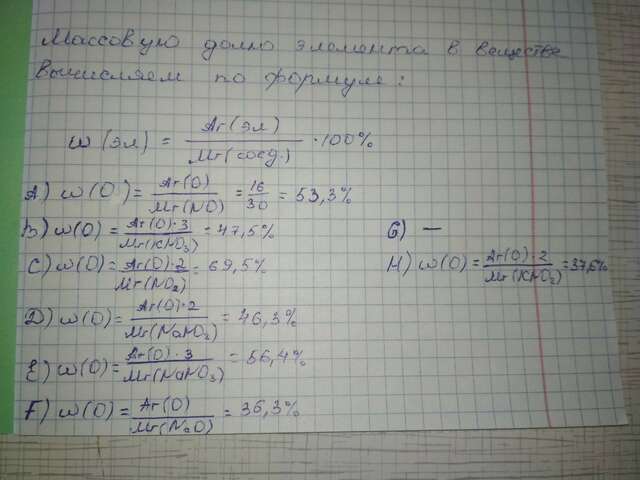 Массовую долю элемента в веществе
вычисляем по формуле:
w (эл) = Ar(эл) / Mr(соед.) · 100%
A) w(O) = Ar(O) / Mr(NO) = 16/30 = 53,3%
B) w(O) = Ar(O)·3 / Mr(KNO₃) = 47,5%
C) w(O) = Ar(O)·2 / Mr(NO₂) = 69,5%
D) w(O) = Ar(O)·2 / Mr(NaNO₂) = 46,3%
E) w(O) = Ar(O)·3 / Mr(NaNO₃) = 56,4%
F) w(O) = Ar(O) / Mr(N₂O) = 36,3%
G) —
H) w(O) = Ar(O)·2 / Mr(KNO₂) = 37,6%